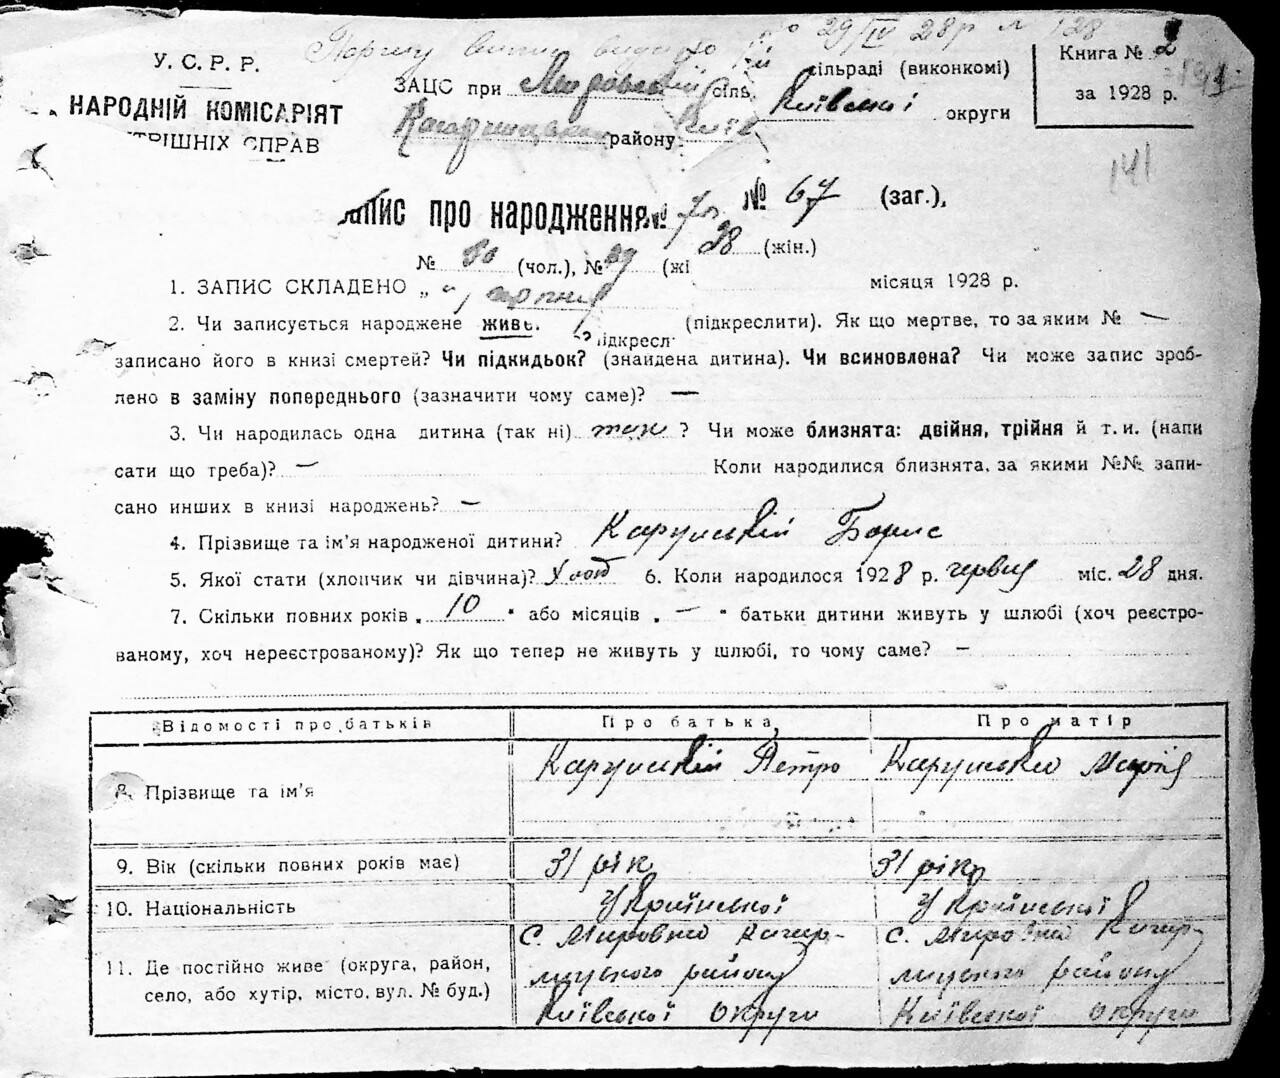 29/IV 28 р № 128
У. С. Р. Р.
НАРОДНІЙ КОМІСАРІЯТ
ТРІШНІХ СПРАВ
ЗАЦС при сіль сільраді (виконкомі)
району Київ Київської округи
Книга № 2
за 1928 р.
141
апис про народження № № 67 (заг.),
№ (чол.), № 29 (жі 28 (жін.)
1. ЗАПИС СКЛАДЕНО „ “ місяця 1928 р.
2. Чи записується народжене живе. (підкреслити). Як що мертве, то за яким № —
підкресл
записано його в книзі смертей? Чи підкидьок? (знайдена дитина). Чи всиновлена? Чи може запис зроб-
лено в заміну попереднього (зазначити чому саме)? —
3. Чи народилась одна дитина (так ні) так ? Чи може близнята: двійня, трійня й т. и. (напи
сати що треба)? — Коли народилися близнята, за якими №№ запи-
сано инших в книзі народжень? —
4. Прізвище та ім'я народженої дитини? Карпський Борис
5. Якої стати (хлопчик чи дівчина)? 6. Коли народилося 1928 р. червня міс. 28 дня.
7. Скільки повних років „ 10 “ або місяців „ — “ батьки дитини живуть у шлюбі (хоч реєстро-
ваному, хоч нереєстрованому)? Як що тепер не живуть у шлюбі, то чому саме? —
Відомості про батьків Про батька Про матір
8. Прізвище та ім'я Петро Марія
9. Вік (скільки повних років має) 31 рік 31 рік
10. Національність Української Української
11. Де постійно живе (округа, район,
село, або хутір, місто, вул. № буд.)
с. Мировка Кагар-
лицького району
Київської округи
с. Мировка Кагар-
лицького району
Київської округи